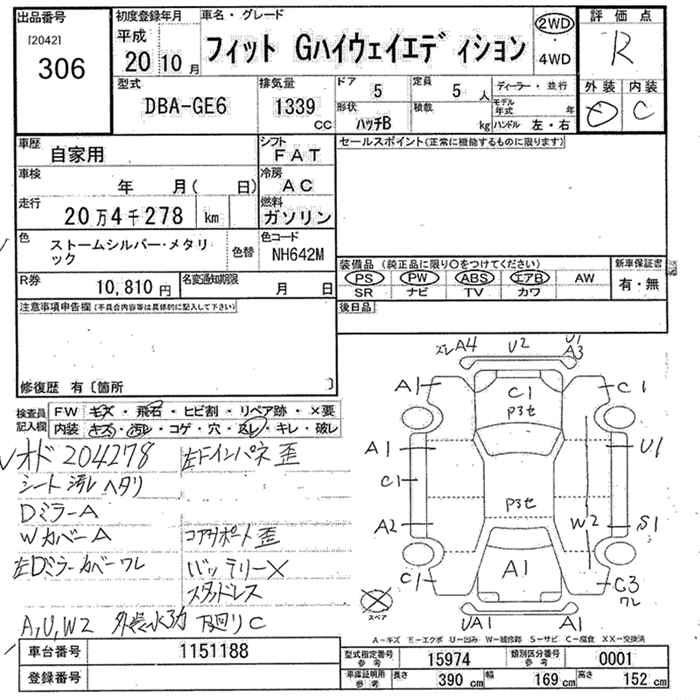 出品番号
[2042]
306
初度登録年月
平成
20年10月
車名・グレード
フィット Gハイウェイエディション
2WD
・
4WD
評価点
R
外装 内装
C
型式
DBA-GE6
排気量
1339
CC
ドア 5
定員 5 人
形状 ハッチB
積載 kg
ディーラー・並行
モデル年式 年
ハンドル 左・右
車歴
自家用
シフト
FAT
セールスポイント(正常に機能するものに限ります)
車検
年 月( 日)
冷房
AC
走行
20万4千278 km
燃料
ガソリン
色
ストームシルバー・メタリ
ック
色替
色コード
NH642M
装備品(純正品に限り〇をつけてください)
PS PW ABS エアB AW
SR ナビ TV カワ
新車保証書
有・無
R券
10,810円
名変通知期限
月 日
後日品
注意事項申告欄(不具合内容等は具体的に記入して下さい)
修復歴 有〔箇所 〕
検査員
記入欄
FW キズ・飛石・ヒビ割・リペア跡・×要
内装 キズ・汚レ・コゲ・穴・返レ・キレ・破レ
メオド 204278
左Fインパネ歪
シート汚レ ヘタリ
DミラーA
WカバーA
コアサポート歪
左Dミラーカバーワレ
バッテリー×
スタッドレス
A,U,W2 外装小キズ 下回りC
ズレA4
U2
U1
A3
A1
C1
P3セ
C1
A1
U1
C1
P3セ
A2
W2
S1
A1
C1
C3
ワレ
スペア
UA1
A1
A-キズ E-エクボ U-凹み W-補修跡 S-サビ C-腐食 XX-交換済
車台番号
1151188
登録番号
型式指定番号
参考
15974
類別区分番号
参考
0001
車庫証明用
参考
長さ 390 cm
幅 169 cm
高さ 152 cm